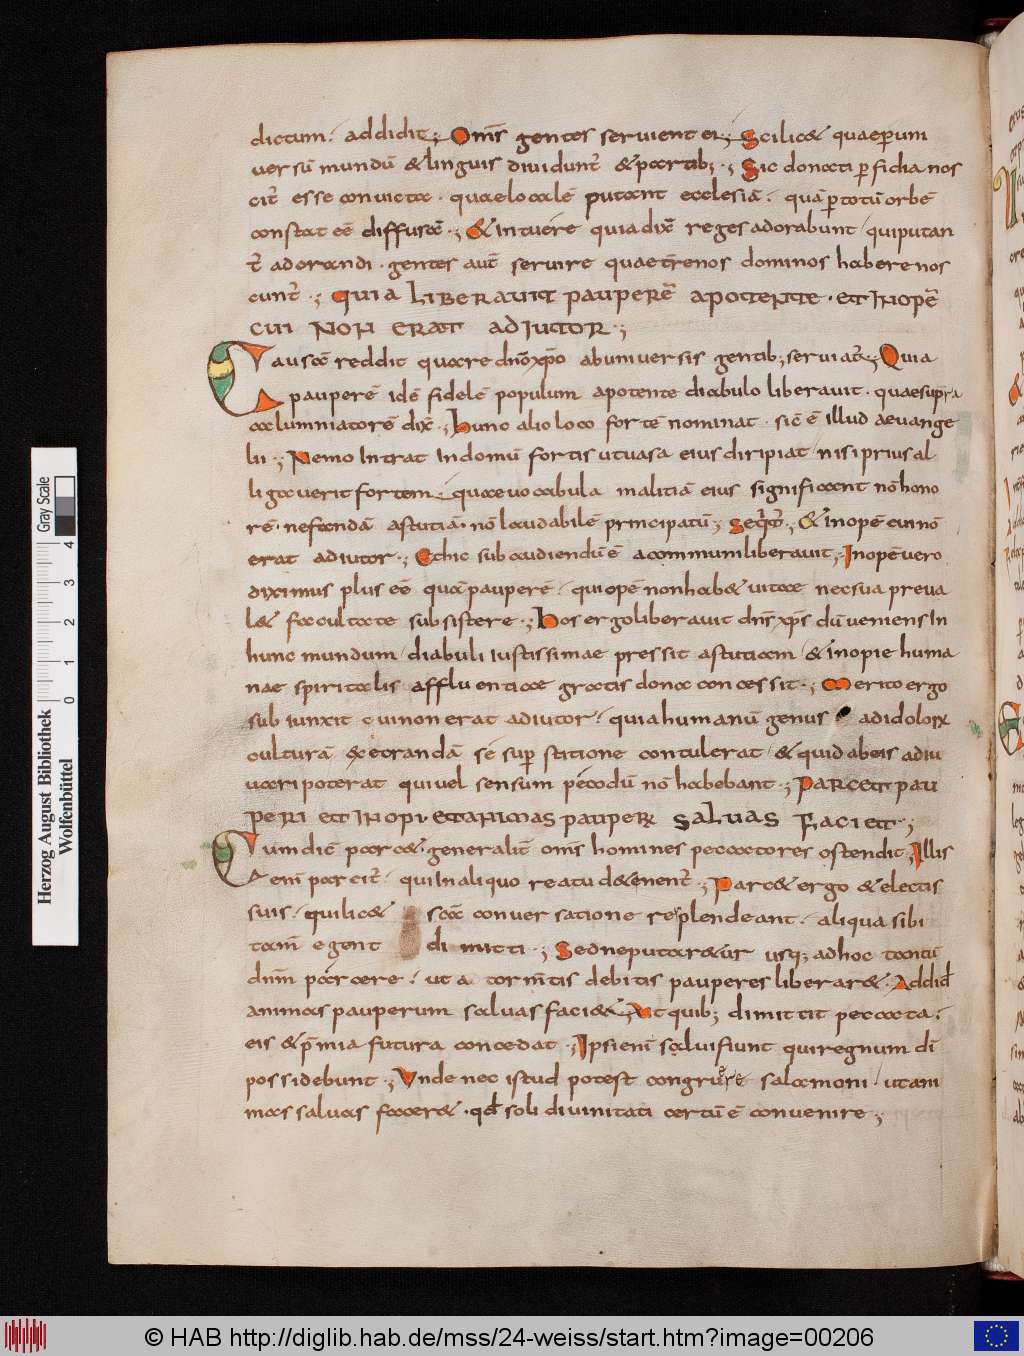 dictum. addidit; Oms̄ gentes servient ei; Scilic& quaeꝑum
versū mundū & linguis dividunt̄ & partib;; Sic donati ꝑfidia nos
cit̄ esse convictā. quae localē putant ecclesiā. quā ꝑ totū orbē
constat eē diffusā; & intuere quia dix̄ reges adorabunt qui putan
t̄ adorandi. gentes aut̄ servire quae t̄renos dominos habere nos
cunt̄; QUIA LIBERAVIT PAUPERĒ A POTENTE. ET INOPĒ
CUI NON ERAT ADIUTOR;
Causā reddit quare dn̄o xp̄o ab universis gentib; serviat̄; Quia
pauperē idē fidelē populum a potente diabulo liberavit. quae supra
calumniatorē dix̄; Hunc alio loco fortē nominat. sic̄ ē illud aevange
lii; Nemo intrat in domū fortis ut vasa eius diripiat nisi prius al
ligaverit fortem. quae vocabula malitiā eius significant nō hono
rē. nefandā astutiā. nō laudabilē principatū; Seqt̄; & inopē cui nō
erat adiutor; Et hic subaudiendū ē a communi liberavit; Inopē vero
diximus plus eē quā pauperē. qui opē non hab& vitae nec sua preva
l& facultate subsistere; Hos ergo liberavit dn̄s xp̄s dū veniens in
hunc mundum diabuli iustissimae pressit astutiam & inopie huma
nae spiritalis affluentiae gratis dona concessit; Merito ergo
subiunxit cui non erat adiutor. quia humanū genus ad idolorꝝ
culturā exēcrandā se supꝑstitione contulerat & quid ab eis adiu
vari poterat qui vel sensum pecodū nō habebant; PARCET PAU
PERI ET INOPI. ET ANIMAS PAUPERꝝ SALVAS FACIET;
Cum dic̄ parc&. generalit̄ omīs homines peccatores ostendit; Illis
enī parcit̄. qui in aliquo reatu d&enent̄; Parc& ergo & electis
suis. qui lic& scā conversatione resplendeant. aliqua sibi
tam̄ egent dimitti; Sed ne putar&ur usq; ad hoc tantū
dn̄m parcere. ut a torm̄tis debitis pauperes liberar&. Addid̄
animas pauperum salvas faci&; Ut quib; dimittit peccata.
eis & p̄mia futura concedat; Ipsi enī salvi fiunt qui regnum dī
possidebunt; Unde nec istud potest congruere salamoni. ut ani
mas salvas facer&. qd̄ soli divinitati certū ē convenire;
Herzog August Bibliothek
Wolfenbüttel
0 1 2 3 4
Gray Scale
© HAB http://diglib.hab.de/mss/24-weiss/start.htm?image=00206